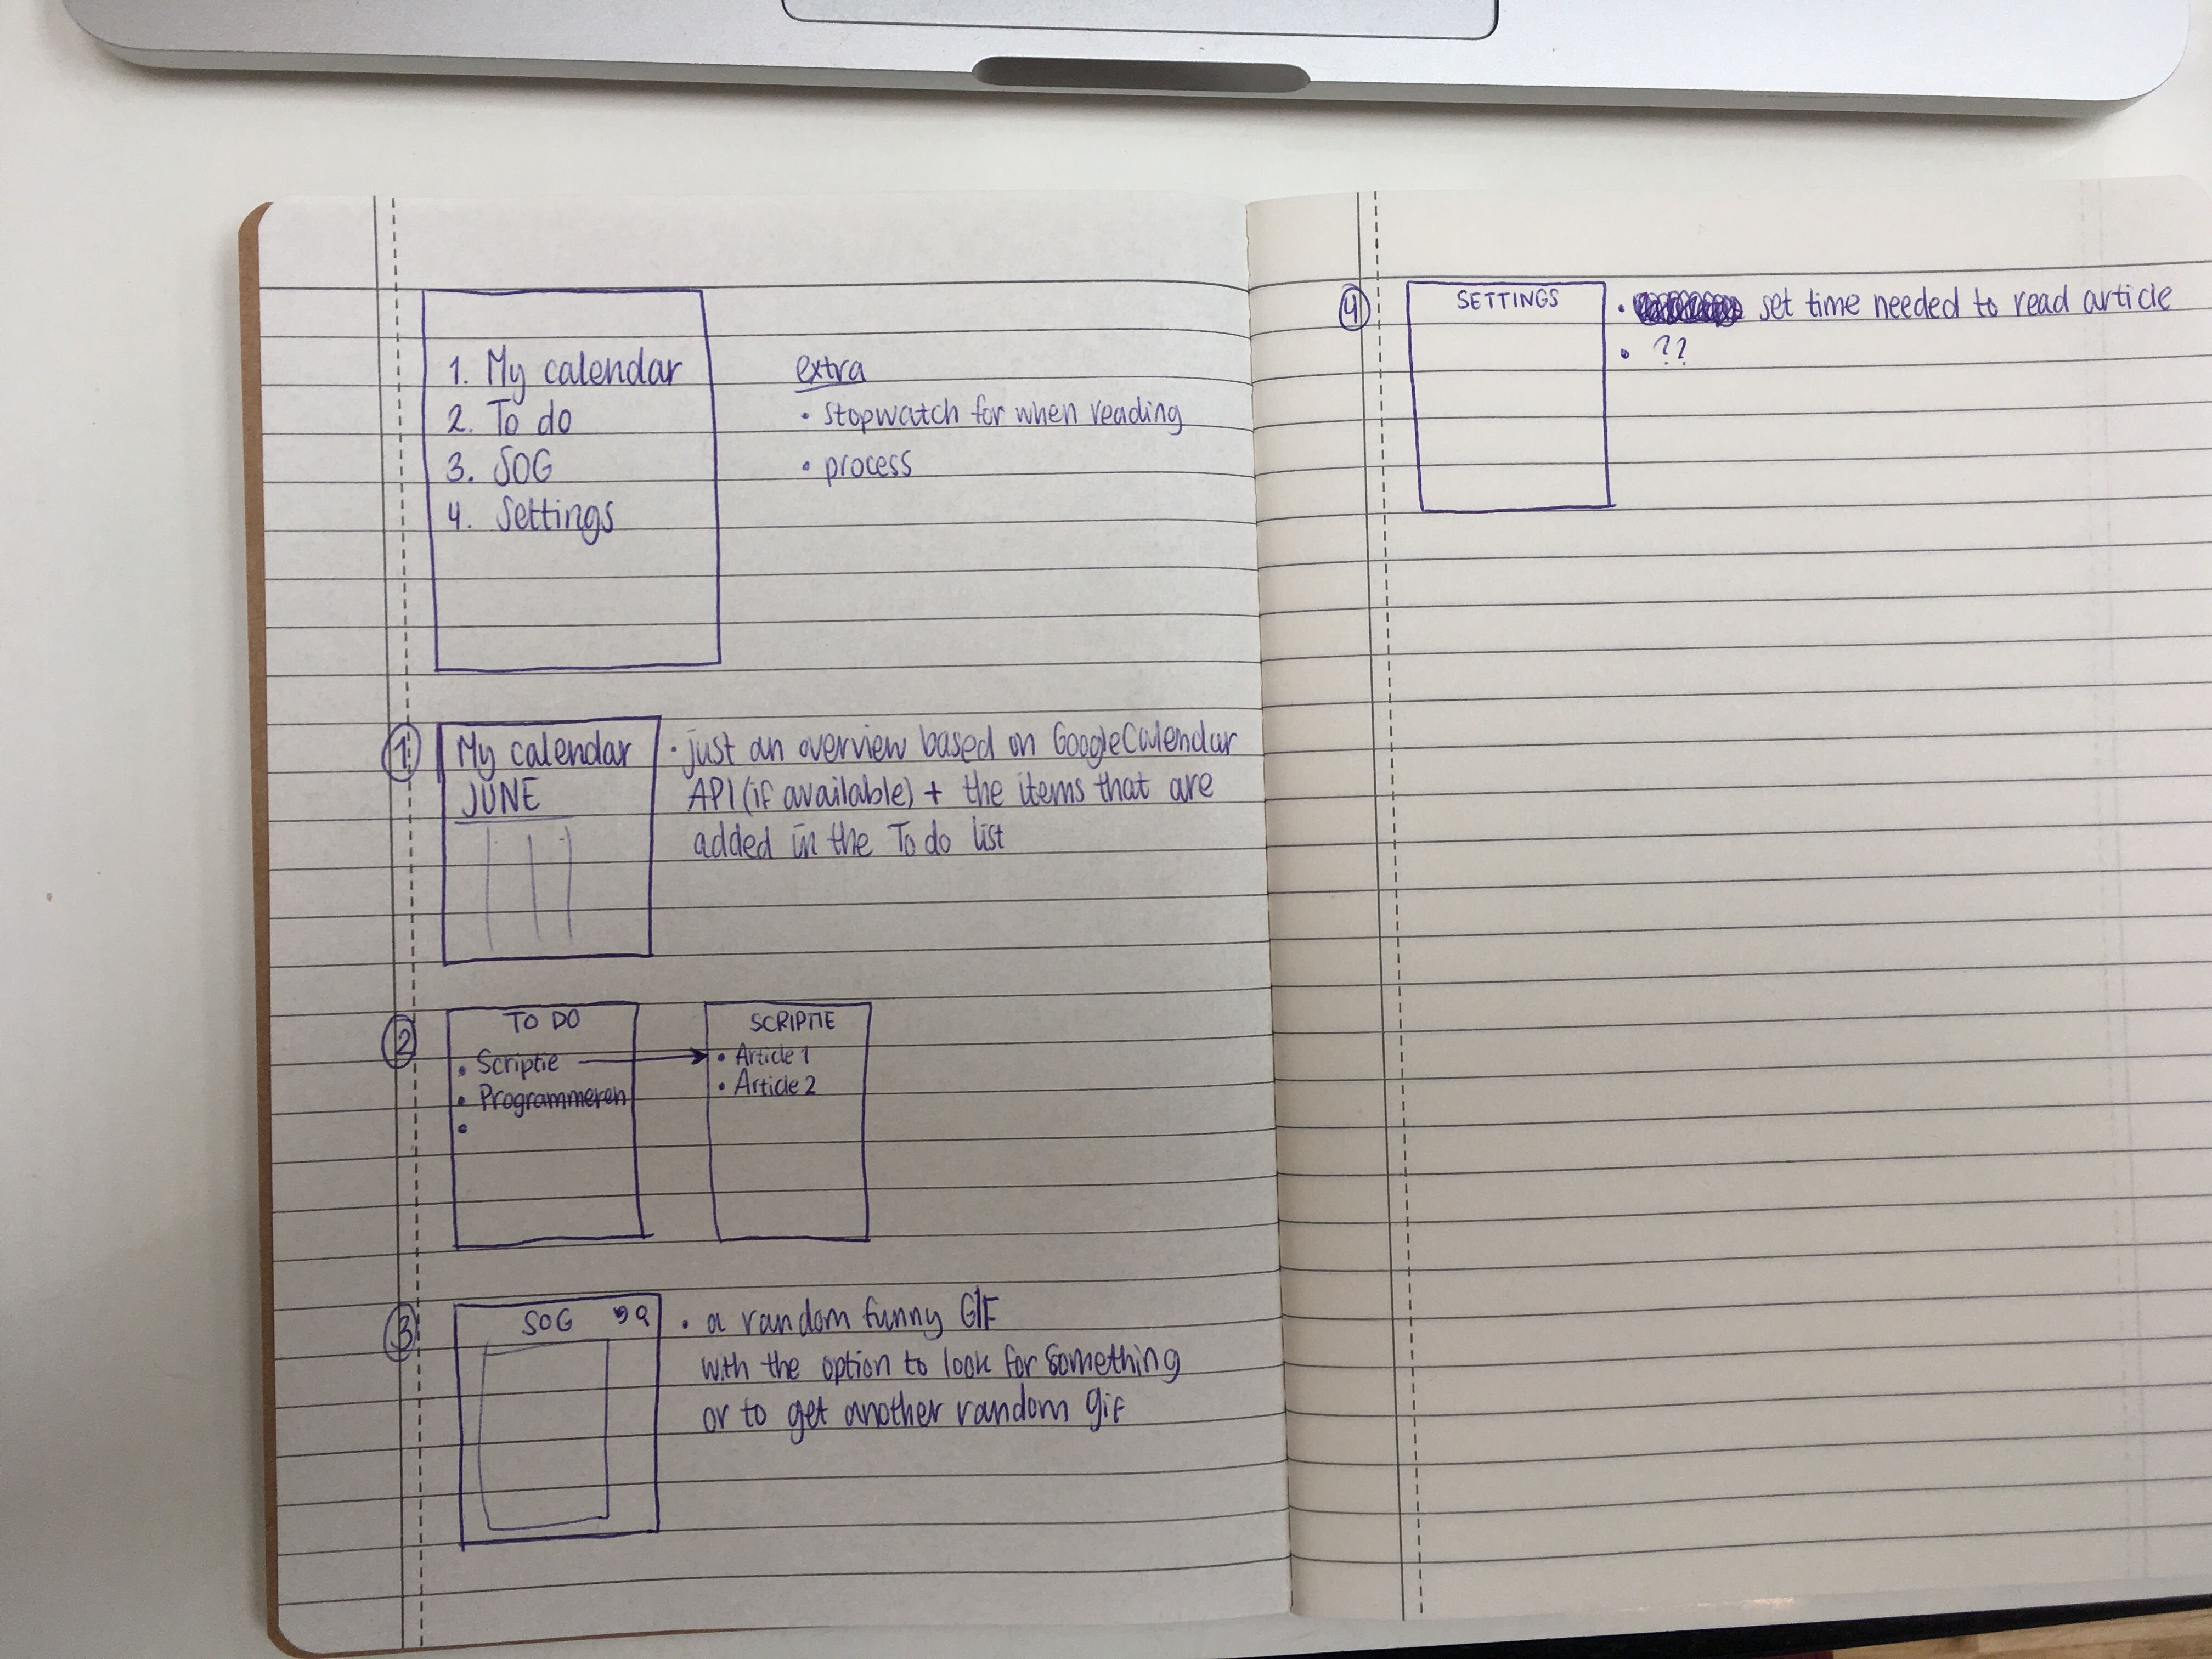 1. My calendar
2. To do
3. SOG
4. Settings
extra
• stopwatch for when reading
• process
1.
My calendar
JUNE
• just an overview based on GoogleCalendar
API (if available) + the items that are
added in the To do list
2
TO DO
• Scriptie
• Programmeren
•
SCRIPTIE
• Article 1
• Article 2
3
SOG
• a random funny GIF
with the option to look for something
or to get another random gif
4
SETTINGS
• set time needed to read article
• ??